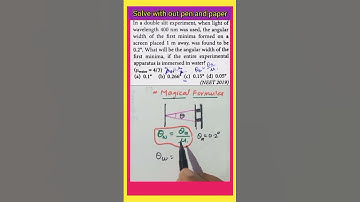 Solve with out pen and paper
In a double slit experiment, when light of
wavelength 400 nm was used, the angular
width of the first minima formed on a
screen placed 1 m away, was found to be
0.2°. What will be the angular width of the
first minima, if the entire experimental
apparatus is immersed in water?
(μwater = 4/3)
(a) 0.1° (b) 0.266° (c) 0.15° (d) 0.05°
(NEET 2019)
Magical Formula
θ
θw = θa/μ θa = 0.2°
θw =